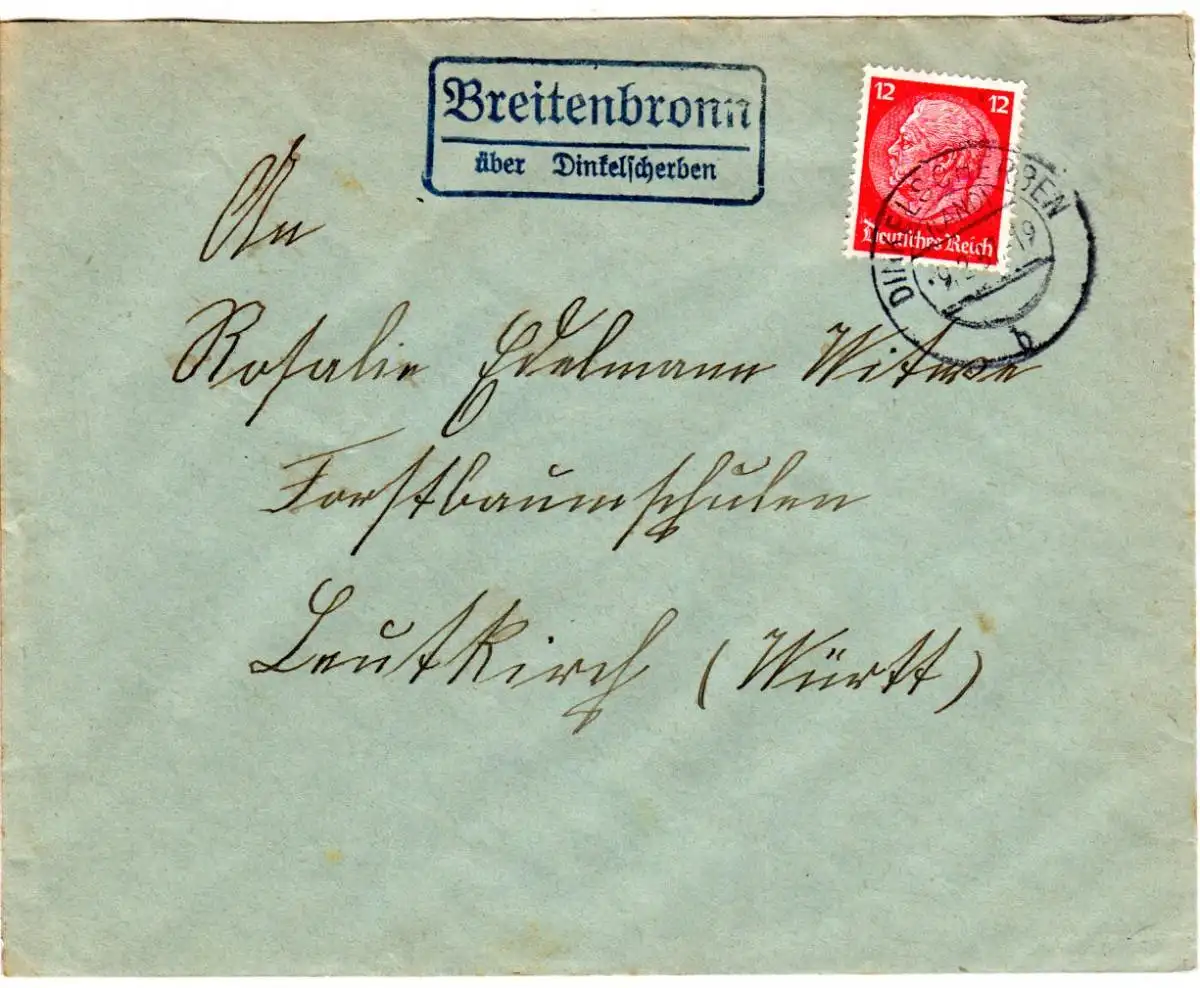 Breitenbronn
über Dinkelscherben
12 12
Deutsches Reich
DINKELSCHERBEN
b
An
Rosalie Edelmann Witwe
Forstbaumschulen
Leutkirch (Württ)